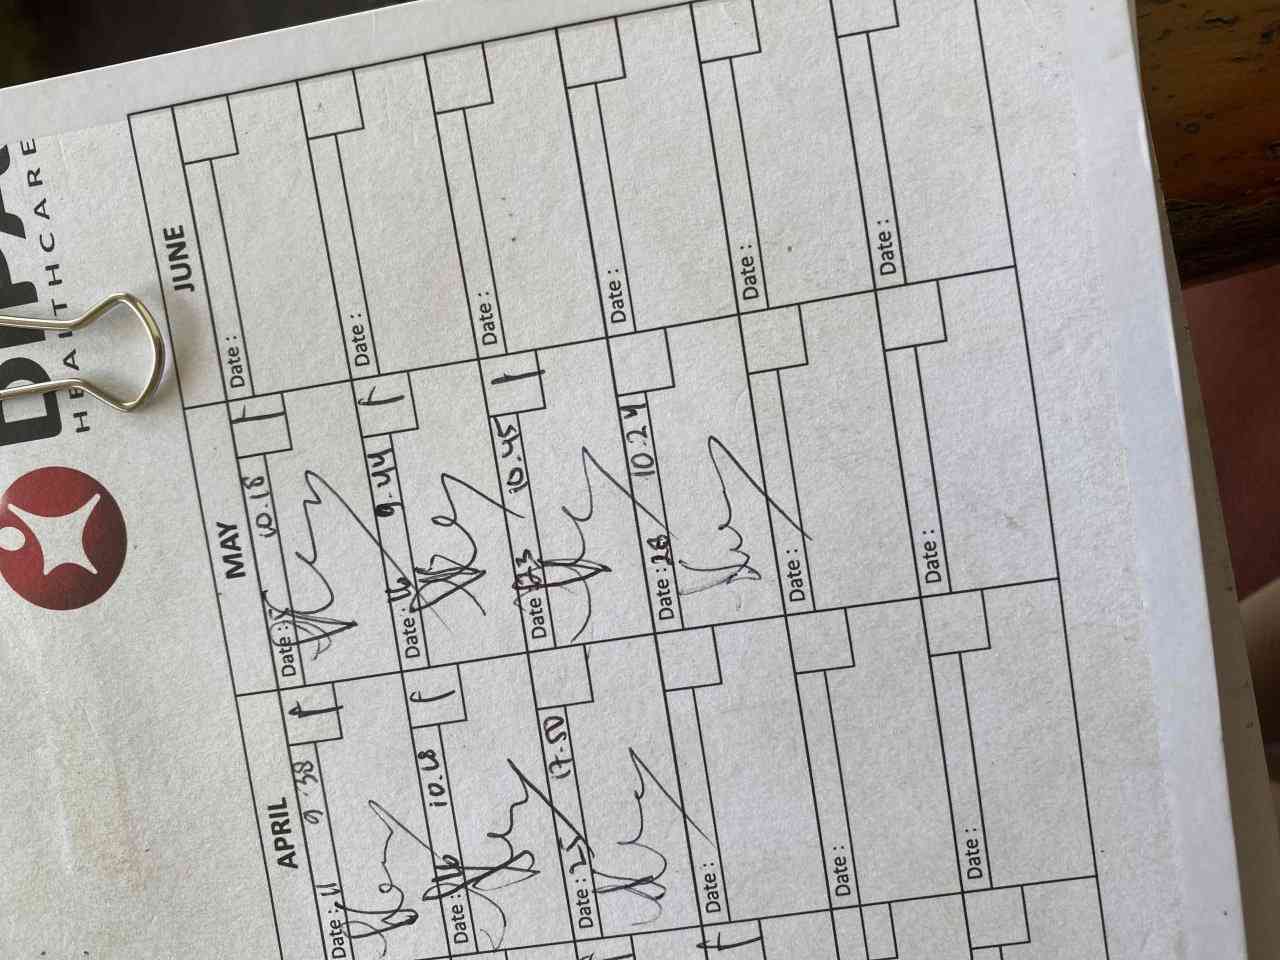 HEALTHCARE
APRIL
Date : 11 9.38
Date : 16 10.18
Date : 25 17.50
Date :
Date :
Date :
MAY
Date : 10.18
Date : 16 9.44
Date : 23 10.45
Date : 28 10.24
Date :
Date :
JUNE
Date :
Date :
Date :
Date :
Date :
Date :